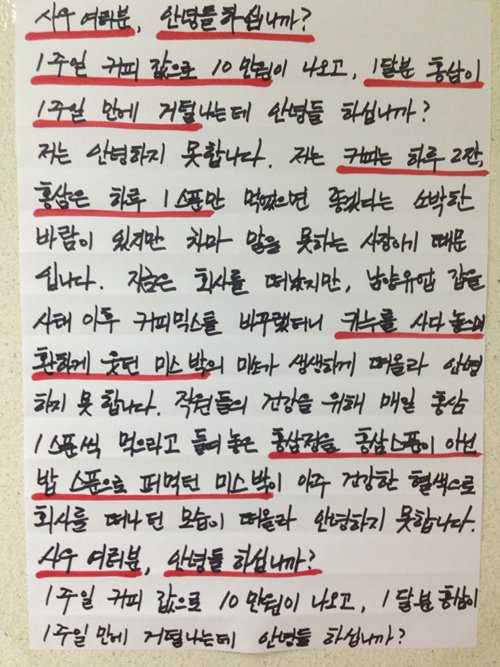 사우 여러분, 안녕들 하십니까?
1주일 커피 값으로 10만원이 나오고, 1달분 홍삼이
1주일 만에 거덜나는데 안녕들 하십니까?
저는 안녕하지 못합니다. 저는 커피는 하루 2잔,
홍삼은 하루 1스푼만 먹었으면 좋겠다는 소박한
바람이 있지만 차마 말을 못하는 사장이기 때문
입니다. 지금은 회사를 떠났지만, 남양유업 갑을
사태 이후 커피믹스를 바꾸랬더니 카누를 사다 놓으며
환하게 웃던 미스 박의 미소가 생생하게 떠올라 안녕
하지 못합니다. 직원들의 건강을 위해 매일 홍삼
1스푼씩 먹으라고 들여놓은 홍삼정을 홍삼스푼이 아닌
밥 스푼으로 퍼먹던 미스 박이 아주 건강한 혈색으로
회사를 떠나던 모습이 떠올라 안녕하지 못합니다.
사우 여러분, 안녕들 하십니까?
1주일 커피 값으로 10만원이 나오고, 1달분 홍삼이
1주일만에 거덜나는데 안녕들 하십니까?